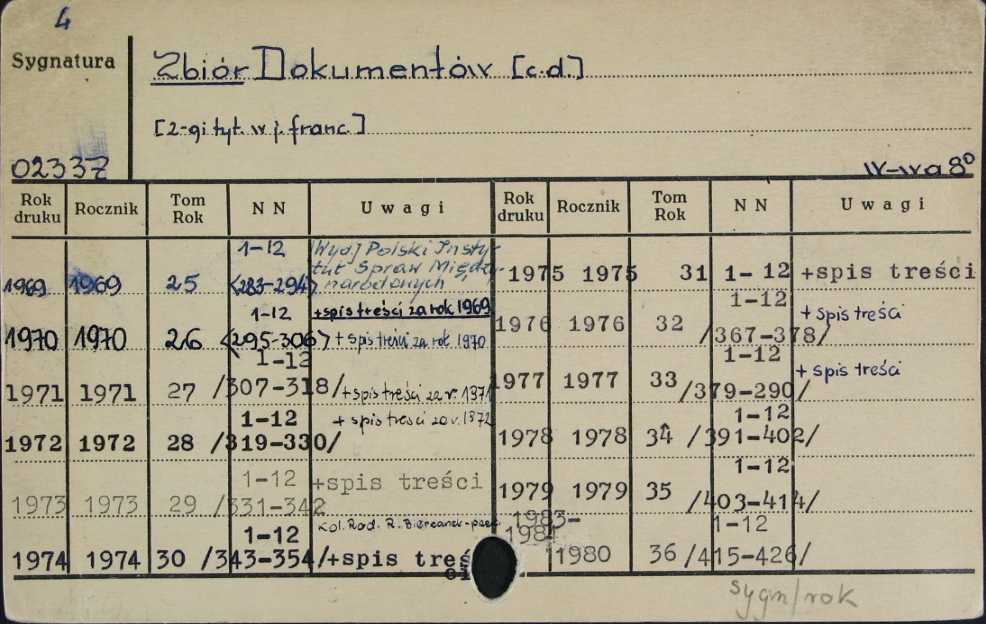 4
Sygnatura
Zbiór Dokumentów [c.d.]
[2-gi tyt. w j. franc.]
02337
W-wa 8°
Rok druku Rocznik Tom Rok N N Uwagi Rok druku Rocznik Tom Rok N N Uwagi
1969 1969 25 1-12 <283-294> [Wyd.] Polski Instytut Spraw Międzynarodowych
+spis treści za rok 1969
1970 1970 26 1-12 <295-306> + spis treści za rok 1970
1971 1971 27 1-12 /307-318/ + spis treści za r. 1971
1972 1972 28 1-12 /319-330/ + spis treści za r. 1972
1973 1973 29 1-12 /331-342 +spis treści
1974 1974 30 1-12 /343-354/ +spis treś
Kol. Rad. R. Bierzanek
1975 1975 31 1-12 +spis treści
1976 1976 32 1-12 /367-378/ + spis treści
1977 1977 33 1-12 /379-290/ + spis treści
1978 1978 34 1-12 /391-402/
1979 1979 35 1-12 /403-414/
1983-1984
1980 36 1-12 /415-426/
sygn/rok